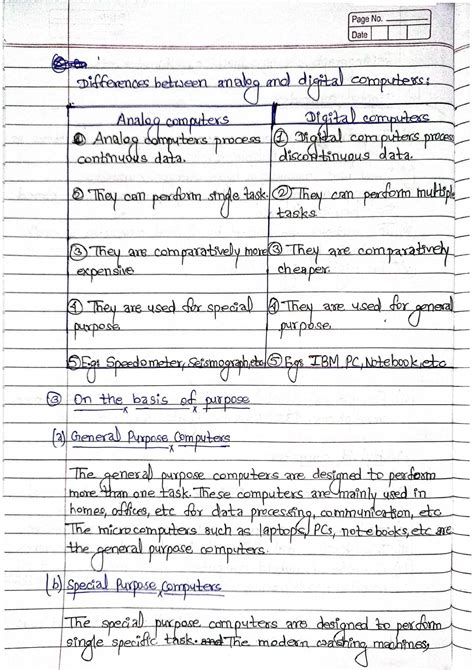 Page No.
Date
Differences between analog and digital computers:
Analog computers
① Analog computers process
continuous data.
② They can perform single task.
③ They are comparatively more
expensive
④ They are used for special
purpose.
⑤ Egs Speedometer, Seismograph, etc
Digital computers
① Digital computers process
discontinuous data.
② They can perform multiple
tasks
③ They are comparatively
cheaper.
④ They are used for general
purpose.
⑤ Egs IBM PC, Notebook, etc
③ On the basis of purpose
(a) General Purpose Computers
The general purpose computers are designed to perform
more than one task. These computers are mainly used in
homes, offices, etc for data processing, communication, etc
The microcomputers such as laptops, PCs, note-books, etc are
the general purpose computers.
(b) Special Purpose Computers
The special purpose computers are designed to perform
single specific task. The modern washing machines,